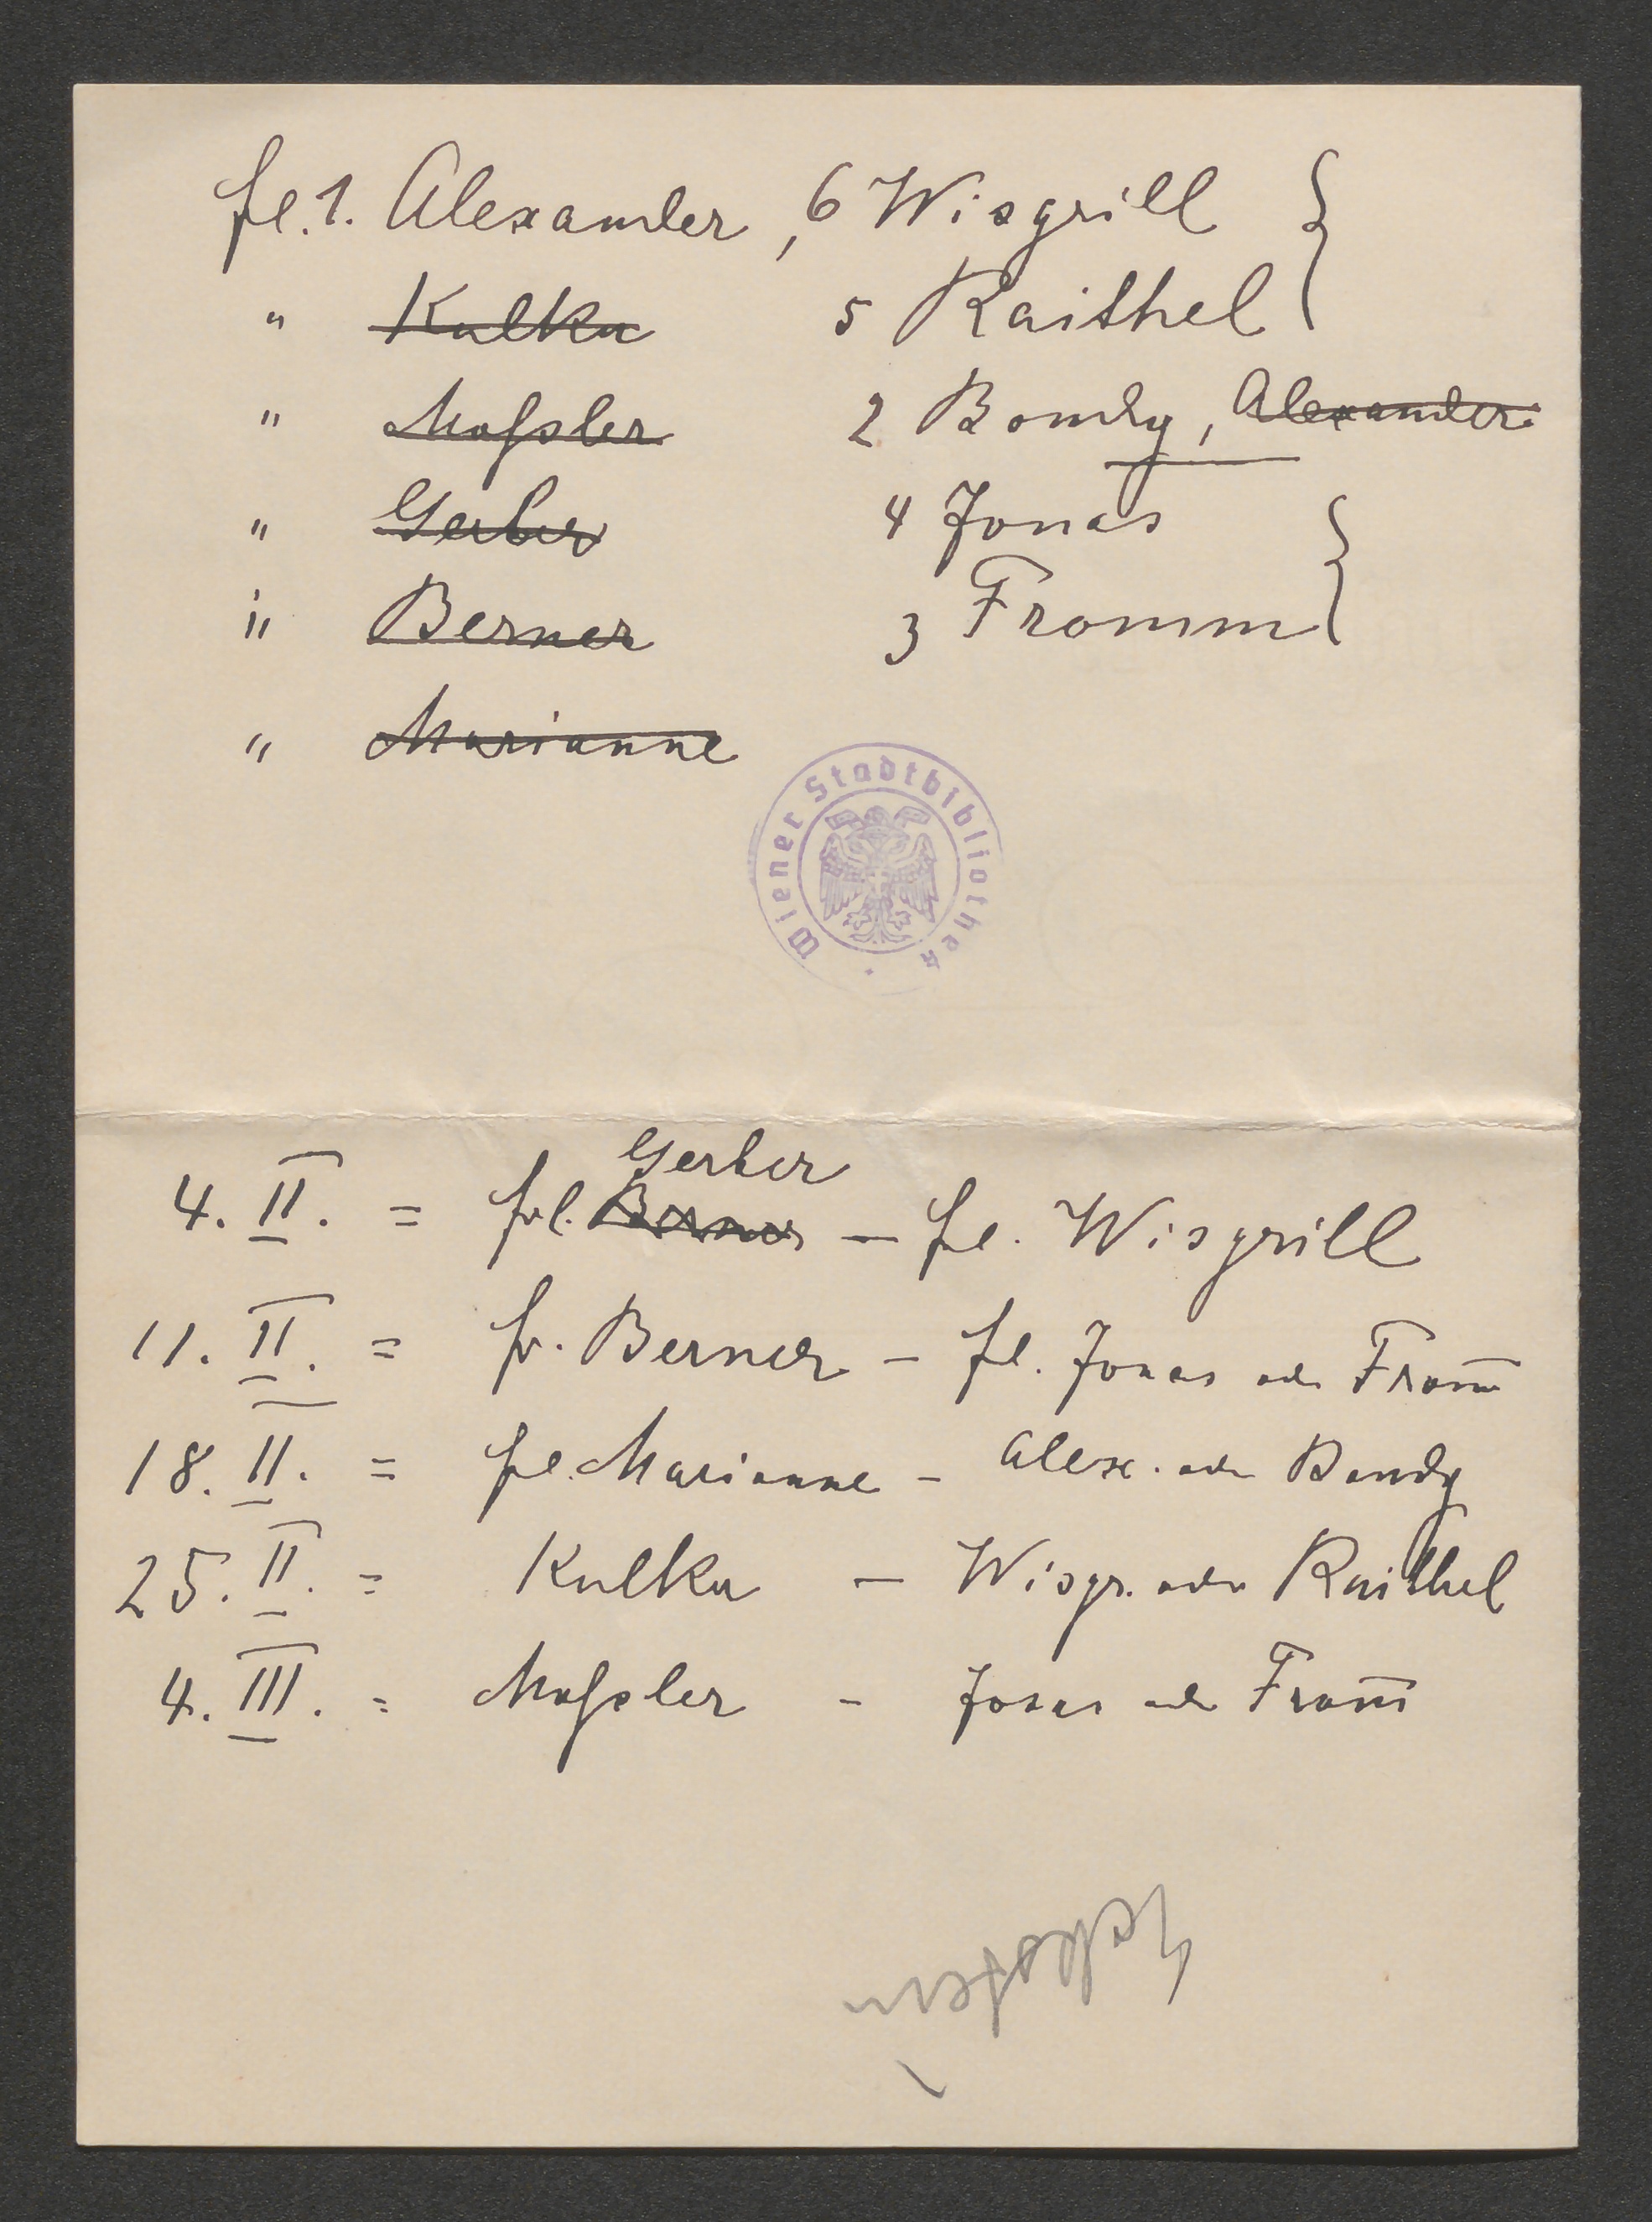 fl. 1. Alexander, 6 Wisgrill
" Kulka 5 Raithel
" Moßler 2 Bondy, Alexander
" Gerber 4 Jonas
" Berner 3 Fromm
" Marianne
Wiener Stadtbibliothek
Gerber
4. II. = frl. Berner — fl. Wisgrill
11. II. = fr. Berner – fl. Jonas oder From̅
18. II. = fl. Marianne – Alex. oder Bondy
25. II. = Kulka – Wisgr. oder Raithel
4. III. = Moßler – Jonas oder From̅